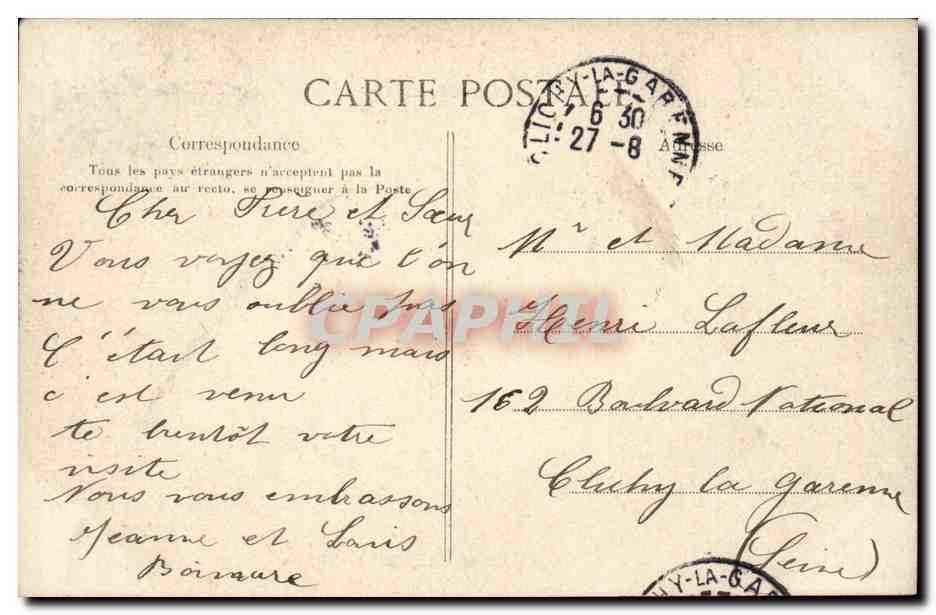 CARTE POSTALE
CLICHY-LA-GARENNE
6 30
27 -8
Correspondance
Tous les pays étrangers n'acceptent pas la
correspondance au recto, se renseigner à la Poste
Cher Frère et Sœur
Vous voyez que l'on
ne vous oublie pas
C'était long mais
c'est venu
bientôt votre
visite
Nous vous embrassons
Jeanne et Louis
Adresse
Mr et Madame
Henri Lafleur
162 Boulvard National
Clichy la Garenne
(Seine)
CPAPHIL
HY-LA-GA